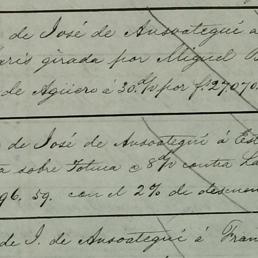 de José de Ansoategui á
aris girada por Miguel
de Agüero á 30 d/v por f. 27,070
de José de Ansoategui á Est
sobre Totura @ 8 d/v contra
96. 59. con el 2% de descuen
de J. de Ansoategui á Fran